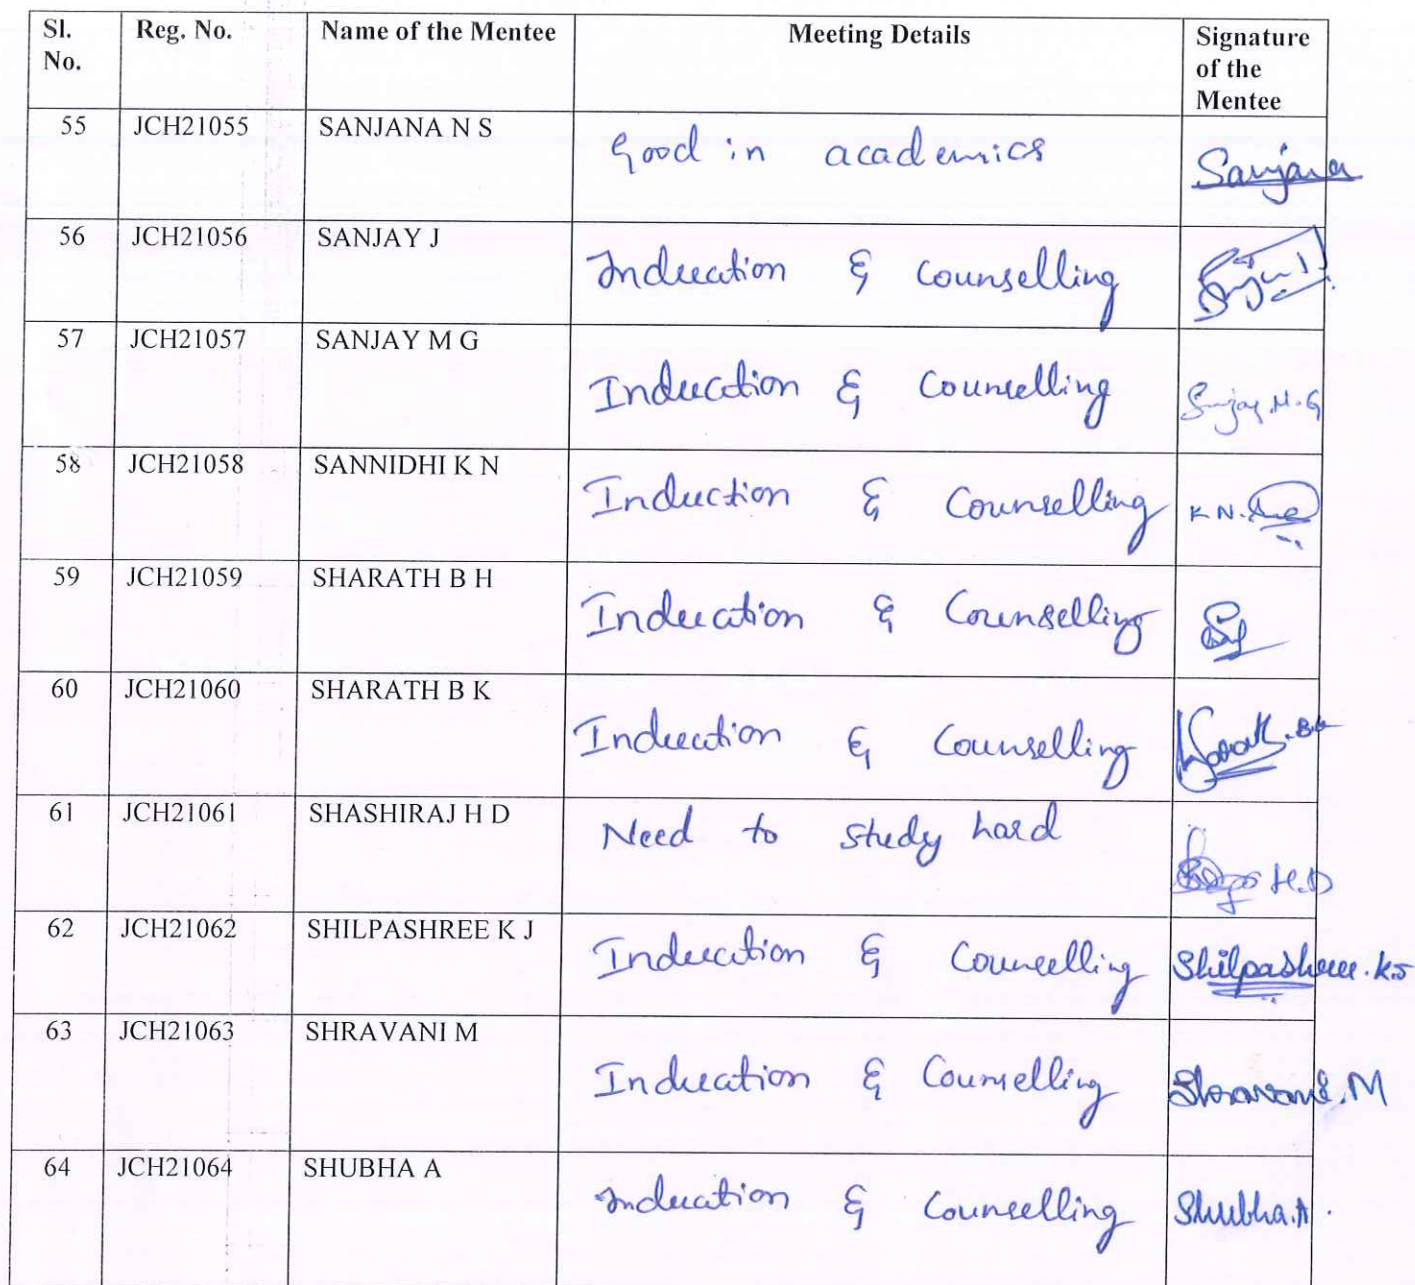 Sl. No. Reg. No. Name of the Mentee Meeting Details Signature of the Mentee
55 JCH21055 SANJANA N S Good in academics Sanjana
56 JCH21056 SANJAY J Induction & Counselling
57 JCH21057 SANJAY M G Induction & Counselling Sanjay M.G
58 JCH21058 SANNIDHI K N Induction & Counselling K N.
59 JCH21059 SHARATH B H Induction & Counselling
60 JCH21060 SHARATH B K Induction & Counselling
61 JCH21061 SHASHIRAJ H D Need to study hard H.D
62 JCH21062 SHILPASHREE K J Induction & Counselling Shilpashree.KJ
63 JCH21063 SHRAVANI M Induction & Counselling Shravani.M
64 JCH21064 SHUBHA A Induction & Counselling Shubha.A.